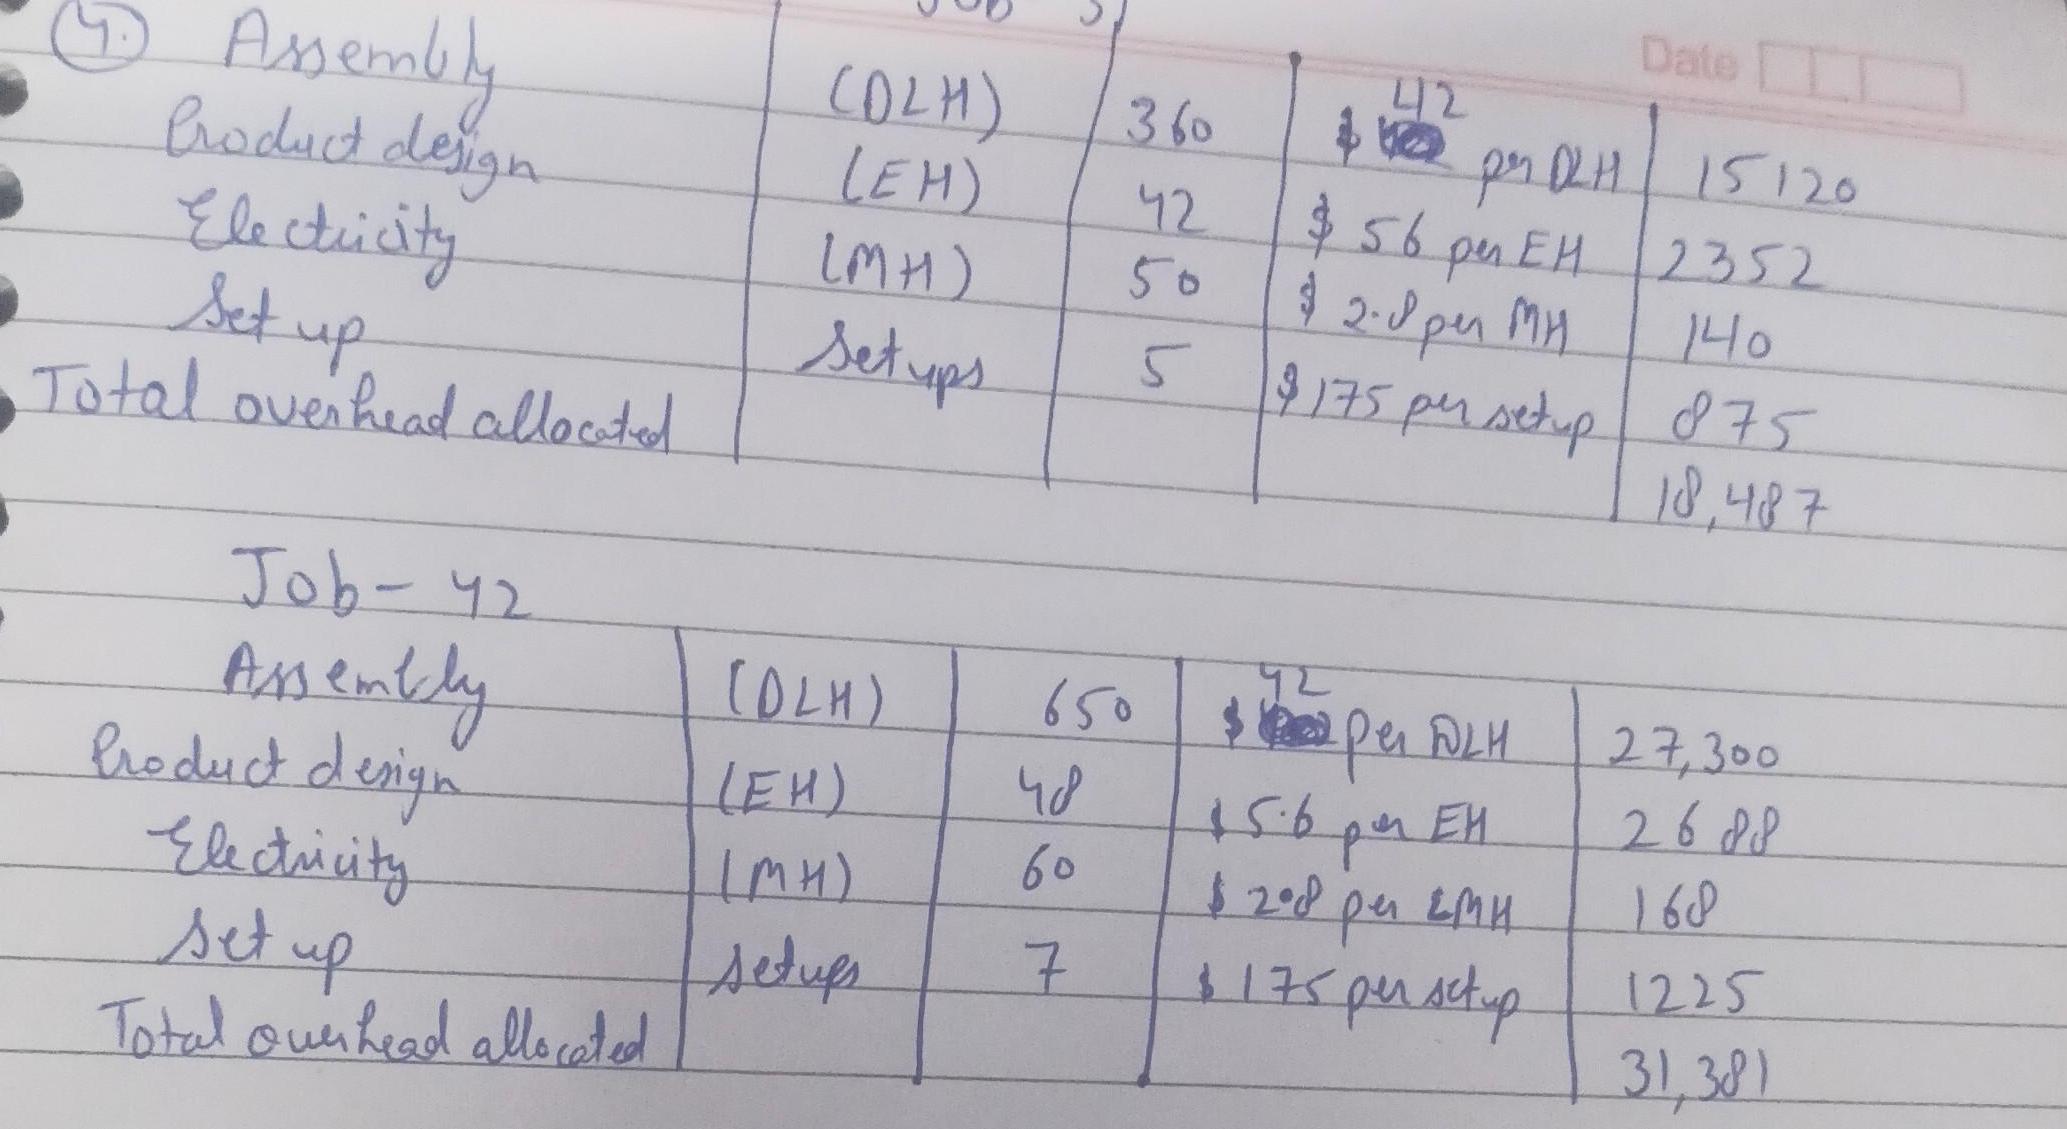 Job
Date
4. Assembly (DLH) 360 $ 42 per DLH 15120
Product design (EH) 42 $ 56 per EH 2352
Electricity (MH) 50 $ 2.8 per MH 140
Set up Setups 5 $ 175 per setup 875
Total overhead allocated 18,487
Job - 42
Assembly (DLH) 650 $ 42 per DLH 27,300
Product design (EH) 48 $ 5.6 per EH 2688
Electricity (MH) 60 $ 2.8 per MH 168
Set up setups 7 $ 175 per setup 1225
Total overhead allocated 31,381